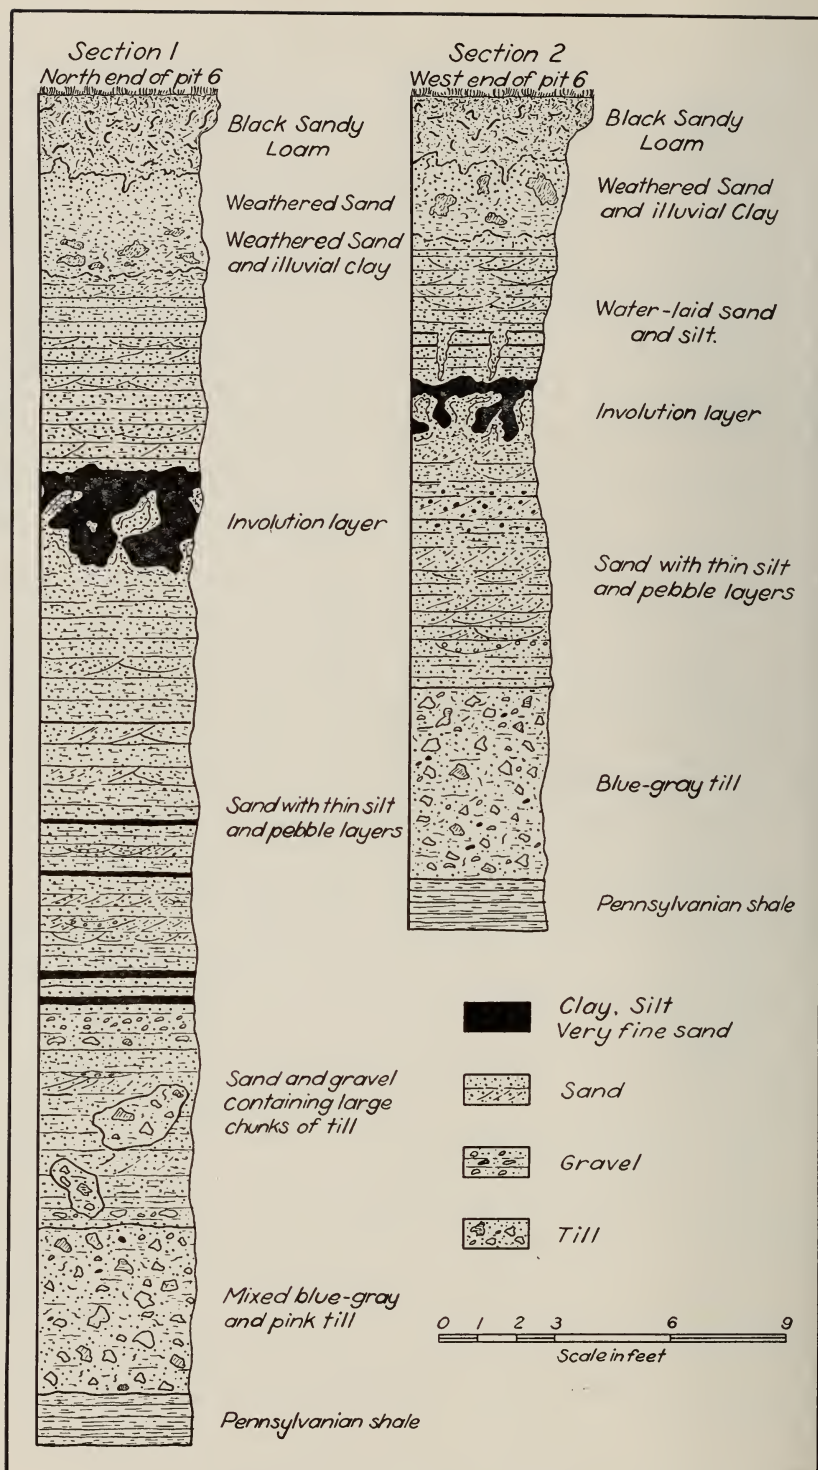 Section 1
North end of pit 6
Black Sandy
Loam
Weathered Sand
Weathered Sand
and illuvial clay
Involution layer
Sand with thin silt
and pebble layers
Sand and gravel
containing large
chunks of till
Mixed blue-gray
and pink till
Pennsylvanian shale
Section 2
West end of pit 6
Black Sandy
Loam
Weathered Sand
and illuvial Clay
Water-laid sand
and silt.
Involution layer
Sand with thin silt
and pebble layers
Blue-gray till
Pennsylvanian shale
Clay, Silt
Very fine sand
Sand
Gravel
Till
0 1 2 3 6 9
Scale in feet